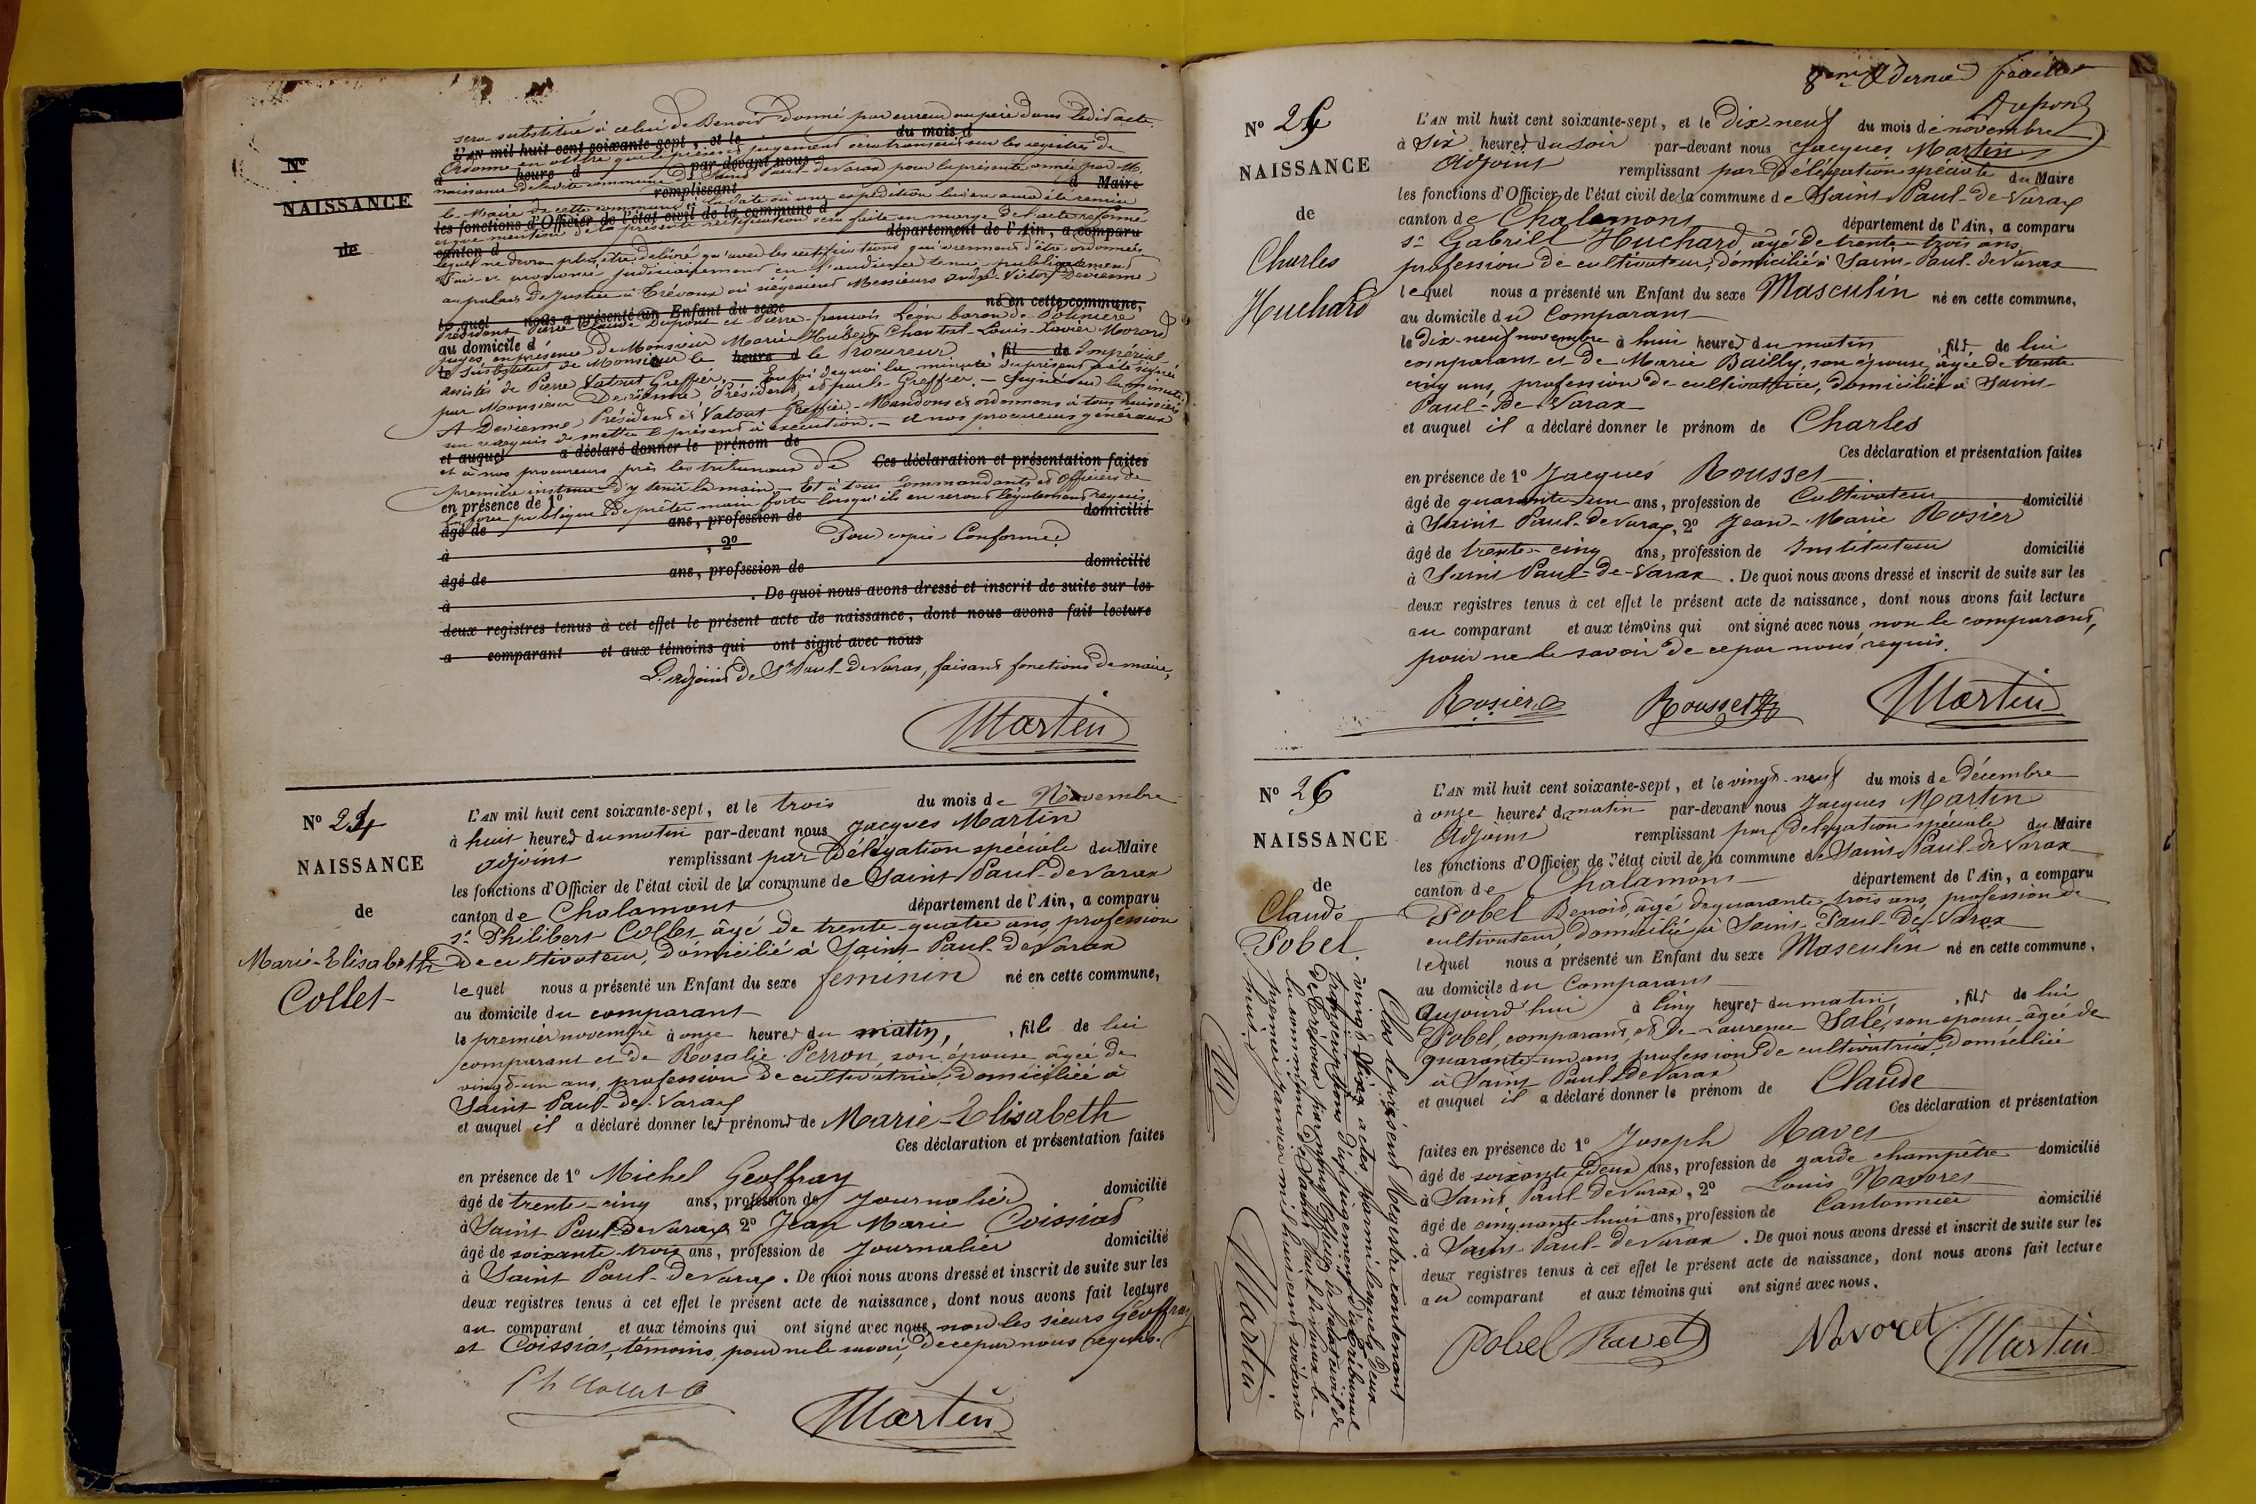 sera substitué à celui de Benoit donné par erreur au père dans ledit acte.
L'AN mil huit cent soixante-sept, et le du mois d
Ordonne en outre que le présent jugement sera transcrit sur les registres de
à heure d par-devant nous
naissance de ladite commune de Saint Paul de Varax pour la présente année par M.
remplissant d Maire
le Maire de cette commune à la date où une expédition lui en aura été remise
les fonctions d'Officier de l'état civil de la commune d
et que mention de la présente rectification sera faite en marge de l'acte réformé
canton d département de l'Ain, a comparu
lequel ne devra plus être délivré qu'avec les rectifications qui viennent d'être ordonnées.
Fait et prononcé judiciairement en l'audience tenue publiquement
au palais de Justice à Trévoux où siégeaient Messieurs André-Victor Devienne
le quel nous a présenté un Enfant du sexe né en cette commune,
Président Pierre Claude Dupont et Pierre-francois Léon baron de Polinière
au domicile d
juges, en présence de Monsieur Marie Hubert Chantal-Louis-Xavier Morand
le heure d , fil de
Substitut de Monsieur le Procureur Impérial
assistés de Pierre Vatout Greffier. — En foi de quoi la minute du présent a été signée
par Monsieur Devienne, Président, et par le Greffier. — Signé sur la minute:
A Devienne, Président et Vatout Greffier. — Mandons et ordonnons à tous huissiers
sur ce requis de mettre le présent à exécution. — A nos procureurs généraux
et auquel a déclaré donner le prénom de
et à nos procureurs près les tribunaux de Ces déclaration et présentation faites
première instance d'y tenir la main. Et à tous Commandants et Officiers de
en présence de 1º
la force publique de prêter main forte lorsqu'ils en seront légalement requis.
âgé de ans, profession de domicilié
à , 2º Pour copie Conforme.
âgé de ans, profession de domicilié
à . De quoi nous avons dressé et inscrit de suite sur les
deux registres tenus à cet effet le présent acte de naissance, dont nous avons fait lecture
a comparant et aux témoins qui ont signé avec nous
L'adjoint de St Paul-de Varax, faisant fonctions de maire,
Martin
Nº
NAISSANCE
de
Nº 24
NAISSANCE
de
Marie-Elisabeth
Collet
L'AN mil huit cent soixante-sept, et le trois du mois de Novembre
à huit heures du matin par-devant nous Jacques Martin
adjoint remplissant par Délégation spéciale du Maire
les fonctions d'Officier de l'état civil de la commune de Saint Paul-de Varax
canton de Chalamont département de l'Ain, a comparu
sr Philibert Collet âgé de trente-quatre ans, profession
de cultivateur, domicilié à Saint-Paul-de Varax
le quel nous a présenté un Enfant du sexe feminin né en cette commune,
au domicile du comparant
le premier novembre à onze heures du matin, , fille de lui
comparant et de Rosalie Perron, son épouse âgée de
vingt-un ans, profession de cultivatrice, domiciliée à
Saint Paul-de-Varax
et auquel il a déclaré donner les prénoms de Marie-Elisabeth
Ces déclaration et présentation faites
en présence de 1º Michel Geoffray
âgé de trente-cinq ans, profession de Journalier domicilié
à Saint Paul-de Varax 2º Jean Marie Coissiat
âgé de soixante-trois ans, profession de Journalier domicilié
à Saint Paul-de Varax. De quoi nous avons dressé et inscrit de suite sur les
deux registres tenus à cet effet le présent acte de naissance, dont nous avons fait lecture
au comparant et aux témoins qui ont signé avec nous non les sieurs Geoffray
et Coissiat, témoins, pour ne le savoir, de ce par nous requis.
Ph Collet
Martin
8eme & dernier feuillet
Dupont
Nº 25
NAISSANCE
de
Charles
Huchard
L'AN mil huit cent soixante-sept, et le Dix-neuf du mois de novembre
à Six heures du soir par-devant nous Jacques Martin
Adjoint remplissant par Délégation spéciale du Maire
les fonctions d'Officier de l'état civil de la commune de Saint-Paul-de Varax
canton de Chalamont département de l'Ain, a comparu
sr Gabriel Huchard, âgé de trente-trois ans,
profession de cultivateur, domicilié à Saint-Paul-de Varax
le quel nous a présenté un Enfant du sexe Masculin né en cette commune,
au domicile du Comparant
le Dix-neuf novembre à huit heures du matin , fils de lui
comparant et de Marie Bailly, son épouse, âgée de trente
cinq ans, profession de cultivatrice, domiciliée à Saint-
Paul-de-Varax
et auquel il a déclaré donner le prénom de Charles
Ces déclaration et présentation faites
en présence de 1º Jacques Rousset
âgé de quarante-un ans, profession de Cultivateur domicilié
à Saint Paul-de Varax, 2º Jean-Marie Rosier
âgé de trente-cinq ans, profession de Instituteur domicilié
à Saint Paul-de-Varax. De quoi nous avons dressé et inscrit de suite sur les
deux registres tenus à cet effet le présent acte de naissance, dont nous avons fait lecture
au comparant et aux témoins qui ont signé avec nous non le comparant,
pour ne le savoir de ce par nous requis.
Rosier Rousset Martin
Nº 26
NAISSANCE
de
Claude
Pobel.
L'AN mil huit cent soixante-sept, et le vingt-neuf du mois de décembre
à onze heures du matin par-devant nous Jacques Martin
Adjoint remplissant par délégation spéciale du Maire
les fonctions d'Officier de l'état civil de la commune de Saint-Paul-de Varax
canton de Chalamont département de l'Ain, a comparu
Pobel Benoit, âgé de quarante-trois ans, profession de
cultivateur, domicilié à Saint-Paul-de Varax
le quel nous a présenté un Enfant du sexe Masculin né en cette commune,
au domicile du Comparant
aujourd'hui à cinq heures du matin , fils de lui
Pobel, comparant, et de Laurence Salé, son épouse âgée de
quarante-un ans, profession de cultivatrice, domiciliée
à Saint-Paul de Varax
et auquel il a déclaré donner le prénom de Claude
Ces déclaration et présentation
faites en présence de 1º Joseph Ravet
âgé de soixante-deux ans, profession de garde champêtre domicilié
à Saint Paul de Varax, 2º Louis Navoret
âgé de cinquante-huit ans, profession de Cantonnier domicilié
à Saint-Paul-de Varax. De quoi nous avons dressé et inscrit de suite sur les
deux registres tenus à cet effet le présent acte de naissance, dont nous avons fait lecture
au comparant et aux témoins qui ont signé avec nous.
Pobel Ravet Navoret Martin
Clos le présent Registre contenant
vingt-six actes parmi lesquels deux
transcriptions d'un jugement du tribunal
de Trévoux par nous Officier de l'état civil de
la commune de Saint Paul de Varax le
premier janvier mil huit cent soixante
huit.
Martin